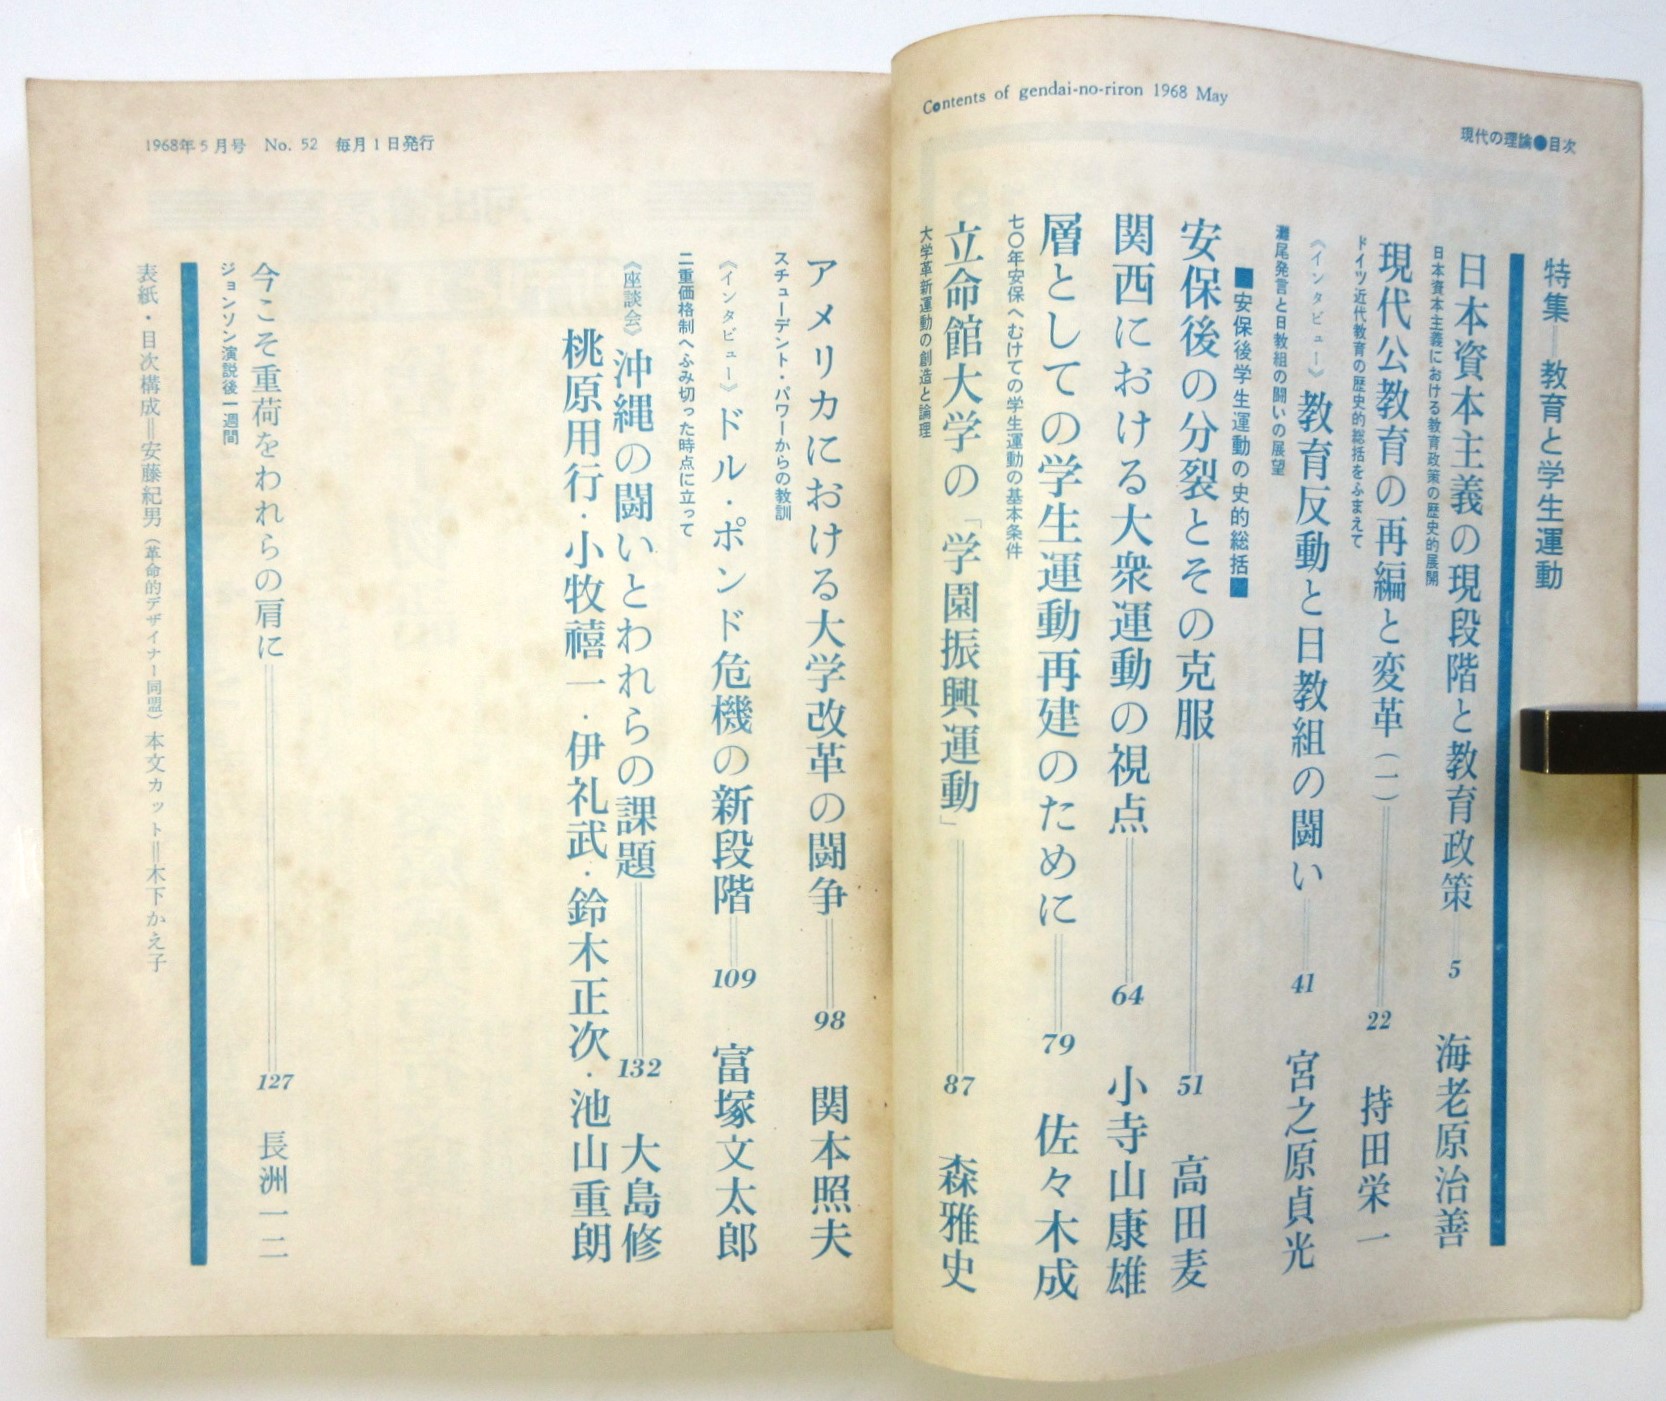 Contents of gendai-no-riron 1968 May
現代の理論●目次
特集＝教育と学生運動
日本資本主義の現段階と教育政策 5 海老原治善
日本資本主義における教育政策の歴史的展開
現代公教育の再編と変革（一） 22 持田栄一
ドイツ近代教育の歴史的総括をふまえて
《インタビュー》教育反動と日教組の闘い 41 宮之原貞光
灘尾発言と日教組の闘いの展望
■安保後学生運動の史的総括■
安保後の分裂とその克服 51 高田麦
関西における大衆運動の視点 64 小寺山康雄
層としての学生運動再建のために 79 佐々木成
七〇年安保へむけての学生運動の基本条件
立命館大学の「学園振興運動」 87 森雅史
大学革新運動の創造と論理
アメリカにおける大学改革の闘争 98 関本照夫
スチューデント・パワーからの教訓
《インタビュー》ドル・ポンド危機の新段階 109 富塚文太郎
二重価格制へふみ切った時点に立って
《座談会》沖縄の闘いとわれらの課題 132 大島修
桃原用行・小牧禧一・伊礼武・鈴木正次・池山重朗
今こそ重荷をわれらの肩に 127 長洲一二
ジョンソン演説後一週間
表紙・目次構成＝安藤紀男（革命的デザイナー同盟）本文カット＝木下かえ子
1968年5月号 No. 52 毎月1日発行